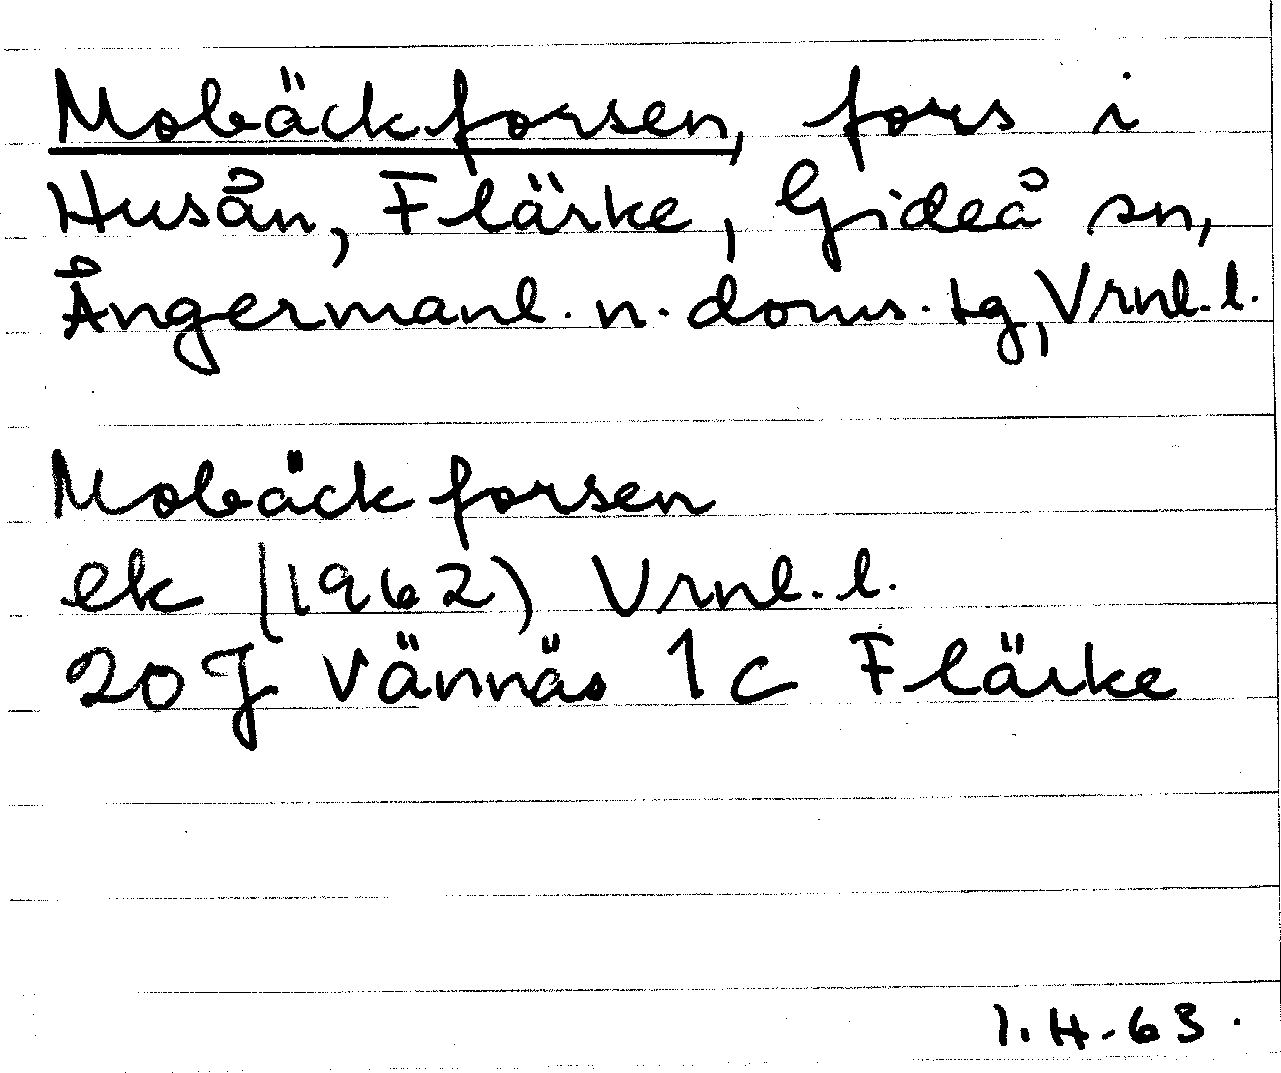 Mobäckforsen, fors i
Husån, Flärke, Gideå sn,
Ångermanl. n. doms. tg, Vrnl. l.
Mobäckforsen
ek (1962) Vrnl. l.
20 J Vännäs 1 c Flärke
I. H. 63.